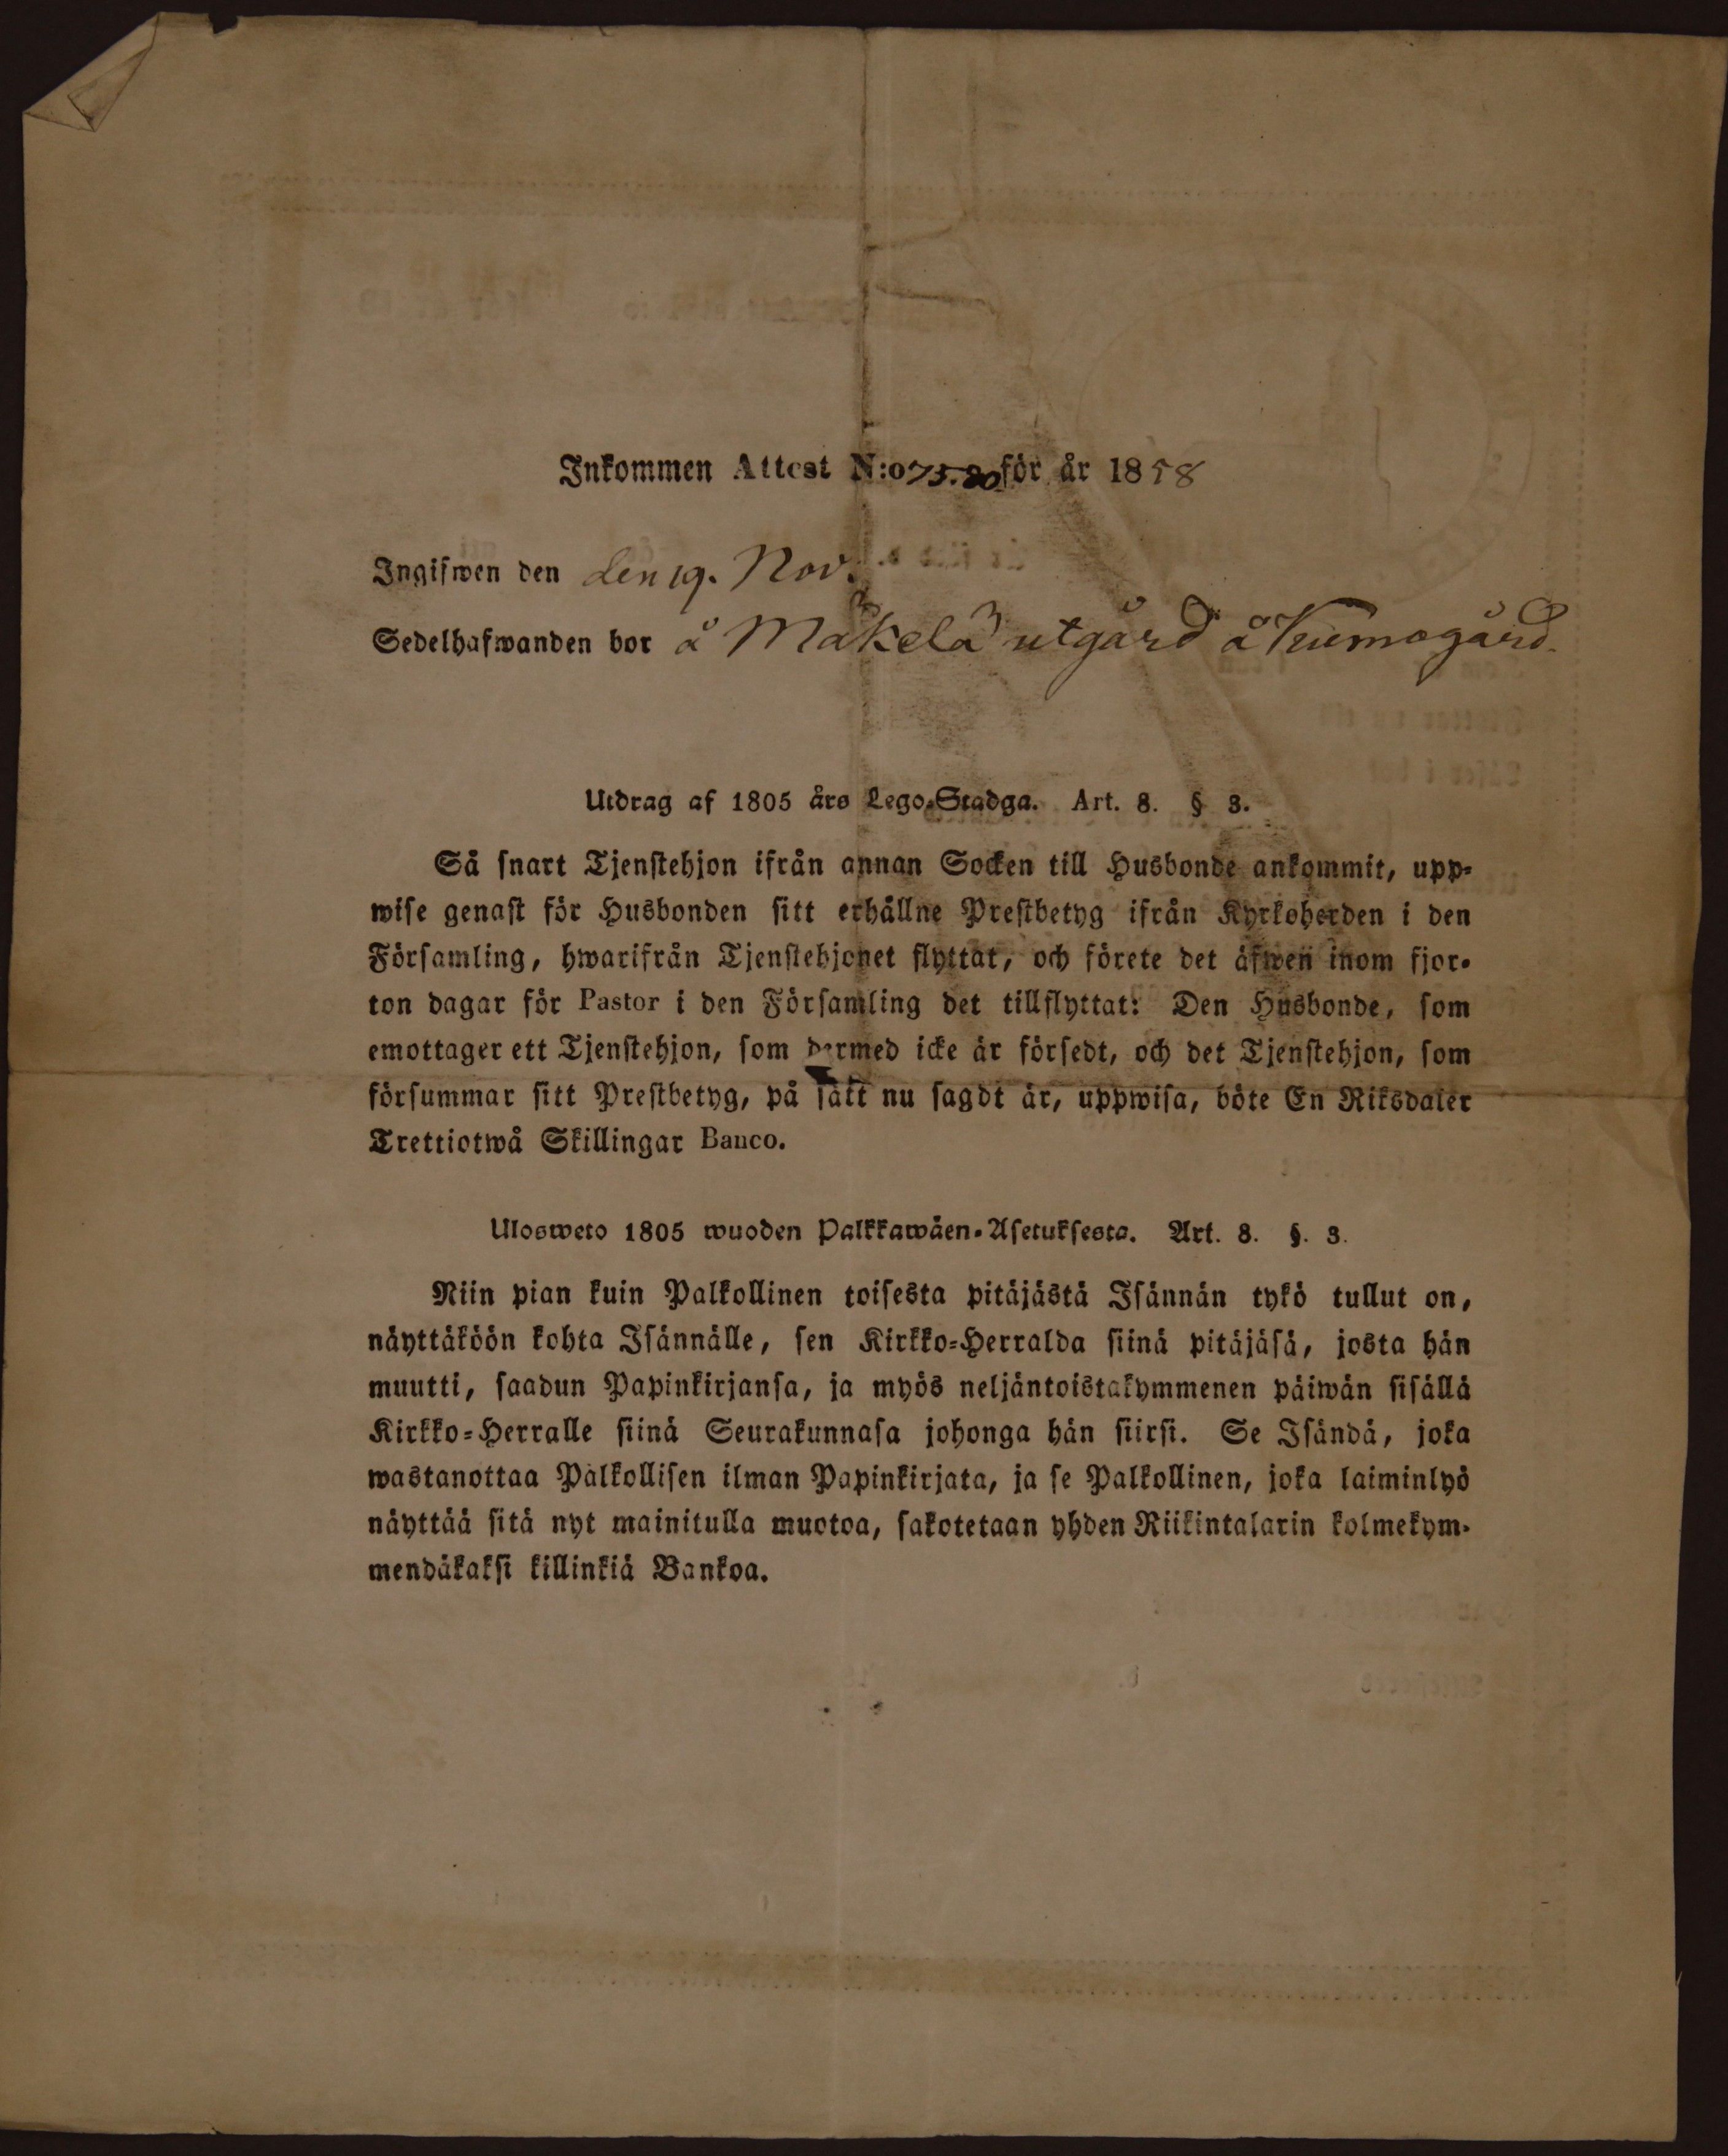 Inkommen Attest N:o 75.80 för år 1858
Ingifwen den den 19. Nov.
Sedelhafwanden bor å Mäkelä utgård å Kumogård.
Utdrag af 1805 års Lego-Stadga. Art. 8. § 3.
Så snart Tjenstehjon ifrån annan Socken till Husbonde ankommit, upp-
wise genast för Husbonden sitt erhållne Prestbetyg ifrån Kyrkoherden i den
Församling, hwarifrån Tjenstehjonet flyttat, och förete det äfwen inom fjor-
ton dagar för Pastor i den Församling det tillflyttat: Den Husbonde, som
emottager ett Tjenstehjon, som dermed icke är försedt, och det Tjenstehjon, som
försummar sitt Prestbetyg, på sätt nu sagdt är, uppwisa, böte En Riksdaler
Trettiotwå Skillingar Banco.
Ulosweto 1805 wuoden Palkkawäen-Asetuksesta. Art. 8. §. 3.
Niin pian kuin Palkollinen toisesta pitäjästä Isännän tykö tullut on,
näyttäköön kohta Isännälle, sen Kirkko-Herralda siinä pitäjäsä, josta hän
muutti, saadun Papinkirjansa, ja myös neljäntoistakymmenen päiwän sisällä
Kirkko-Herralle siinä Seurakunnasa johonga hän siirsi. Se Isändä, joka
wastanottaa Palkollisen ilman Papinkirjata, ja se Palkollinen, joka laiminlyö
näyttää sitä nyt mainitulla muotoa, sakotetaan yhden Riikintalarin kolmekym-
mendäkaksi killinkiä Bankoa.